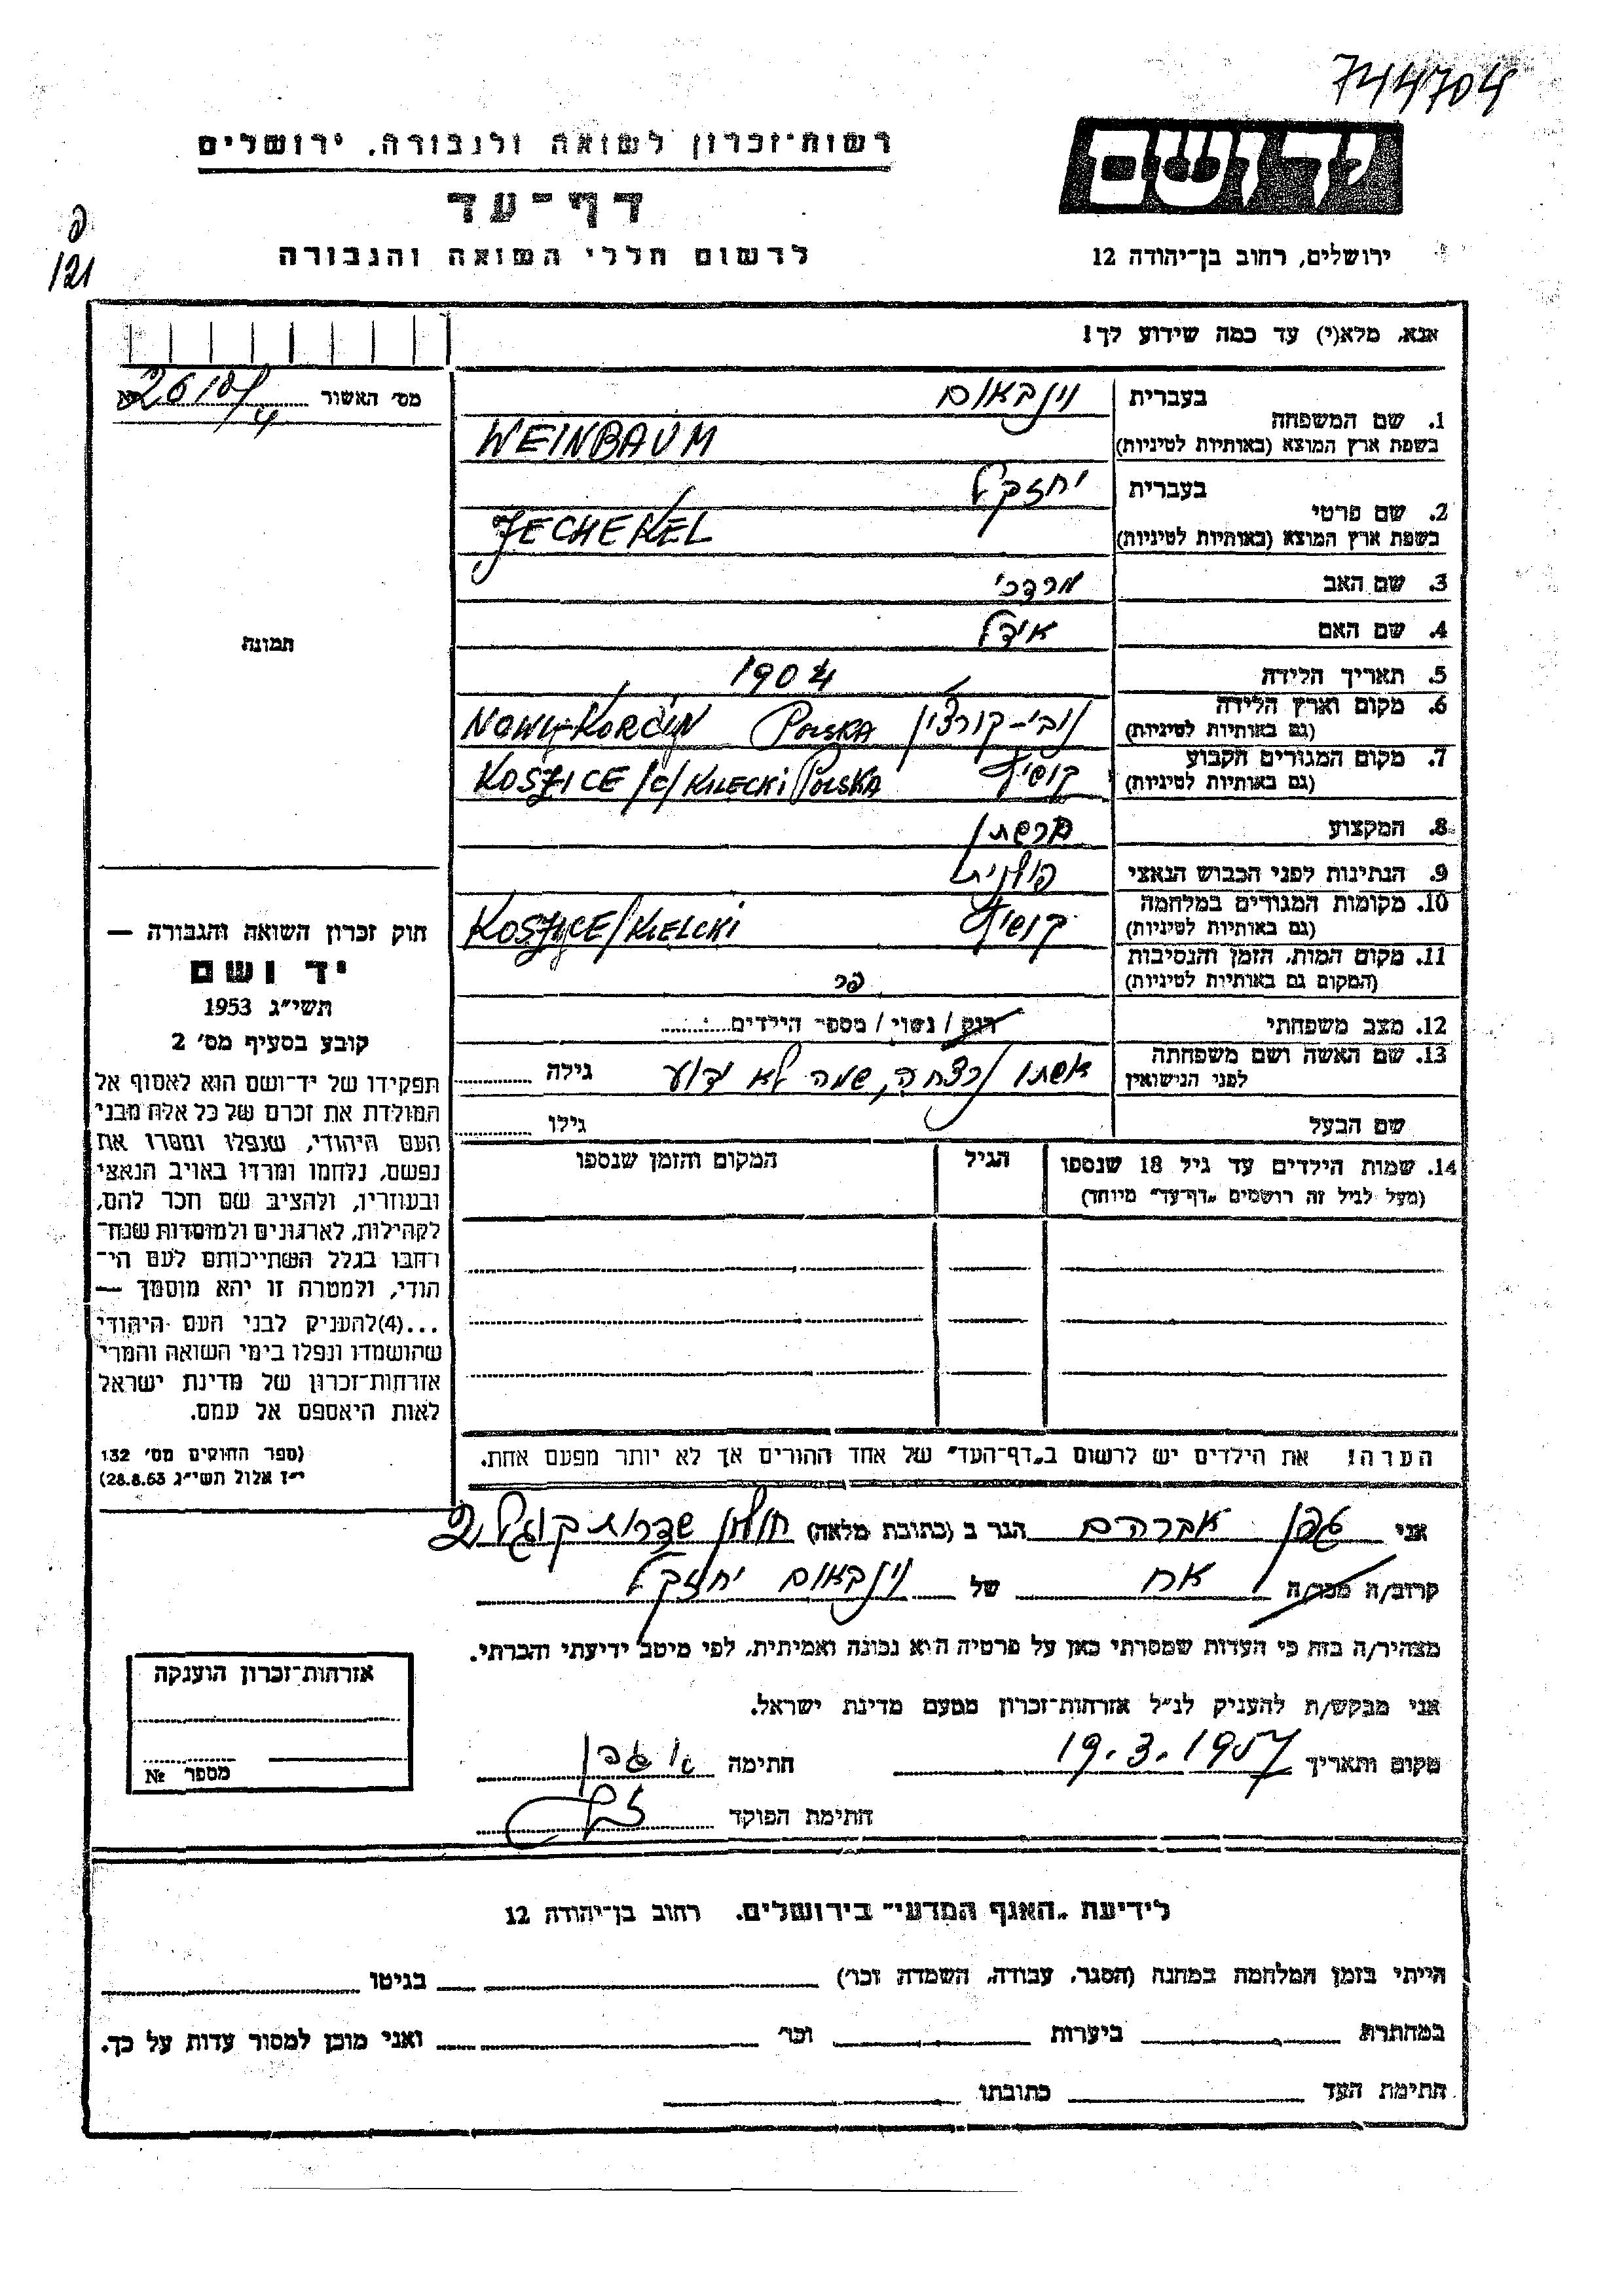 744704
יד ושם
רשות־זכרון לשואה ולגבורה, ירושלים
דף־עד
לרשום חללי השואה והגבורה
ירושלים, רחוב בן־יהודה 12
121
אנא, מלא(י) עד כמה שידוע לך!
מס׳ האשור
1. שם המשפחה
בעברית וינבאום
בשפת ארץ המוצא (באותיות לטיניות) WEINBAUM
2. שם פרטי
בעברית יחזקאל
בשפת ארץ המוצא (באותיות לטיניות) JECHEKEL
3. שם האב מרדכי
4. שם האם אידל
5. תאריך הלידה 1904
6. מקום וארץ הלידה (גם באותיות לטיניות) נובי-קורצ'ין NOWY-KORCIN POLSKA
7. מקום המגורים הקבוע (גם באותיות לטיניות) KOSZICE /C/ KILECKI POLSKA
8. המקצוע
9. הנתינות לפני הכבוש הנאצי פולנית
10. מקומות המגורים במלחמה (גם באותיות לטיניות) KOSZYCE/KIELCKI
11. מקום המות, הזמן והנסיבות (המקום גם באותיות לטיניות)
12. מצב משפחתי רווק / נשוי / מספר הילדים
13. שם האשה ושם משפחתה לפני הנישואין אשתו נרצחה, שמה לא ידוע גילה
שם הבעל גילו
14. שמות הילדים עד גיל 18 שנספו (מעל לגיל זה רושמים „דף־עד״ מיוחד) הגיל המקום והזמן שנספו
הערה! את הילדים יש לרשום ב„דף־העד״ של אחד ההורים אך לא יותר מפעם אחת.
תמונה
חוק זכרון השואה והגבורה —
יד ושם
תשי״ג 1953
קובע בסעיף מס׳ 2
תפקידו של יד־ושם הוא לאסוף אל
המולדת את זכרם של כל אלה מבני
העם היהודי, שנפלו ומסרו את
נפשם, נלחמו ומרדו באויב הנאצי
ובעוזריו, ולהציב שם וזכר להם,
לקהילות, לארגונים ולמוסדות שנח־
רבו בגלל השתייכותם לעם הי־
הודי, ולמטרה זו יהא מוסמך —
...(4) להעניק לבני העם היהודי
שהושמדו ונפלו בימי השואה והמרי
אזרחות־זכרון של מדינת ישראל
לאות היאספם אל עמם.
(ספר החוקים מס׳ 132
י״ז אלול תשי״ג 28.8.53)
אני אברהם הגר ב (כתובת מלאה) חולון שדרות קוגל
קרוב/ה מכר/ה אח של וינבאום יחזקאל
מצהיר/ה בזה כי העדות שמסרתי כאן על פרטיה היא נכונה ואמיתית, לפי מיטב ידיעתי והכרתי.
אני מבקש/ת להעניק לנ״ל אזרחות־זכרון מטעם מדינת ישראל.
מקום ותאריך 19.3.1957 חתימה
חתימת הפוקד
אזרחות־זכרון הוענקה
מספר №
לידיעת „האגף המדעי״ בירושלים, רחוב בן־יהודה 12
הייתי בזמן המלחמה במחנה (הסגר, עבודה, השמדה וכו׳) בגיטו
במחתרת ביערות וכו׳ ואני מוכן למסור עדות על כך.
חתימת העד כתובתו